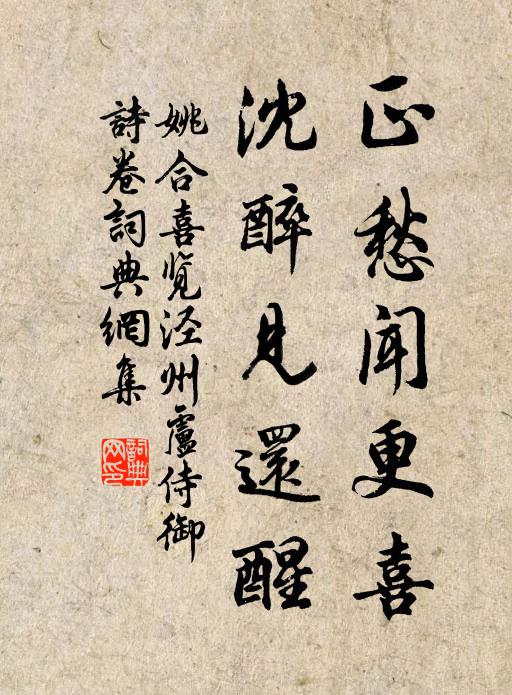 正愁闻更喜
沈醉见還醒
姚合喜览泾州盧侍御
詩卷詞典網集
詞典
网印